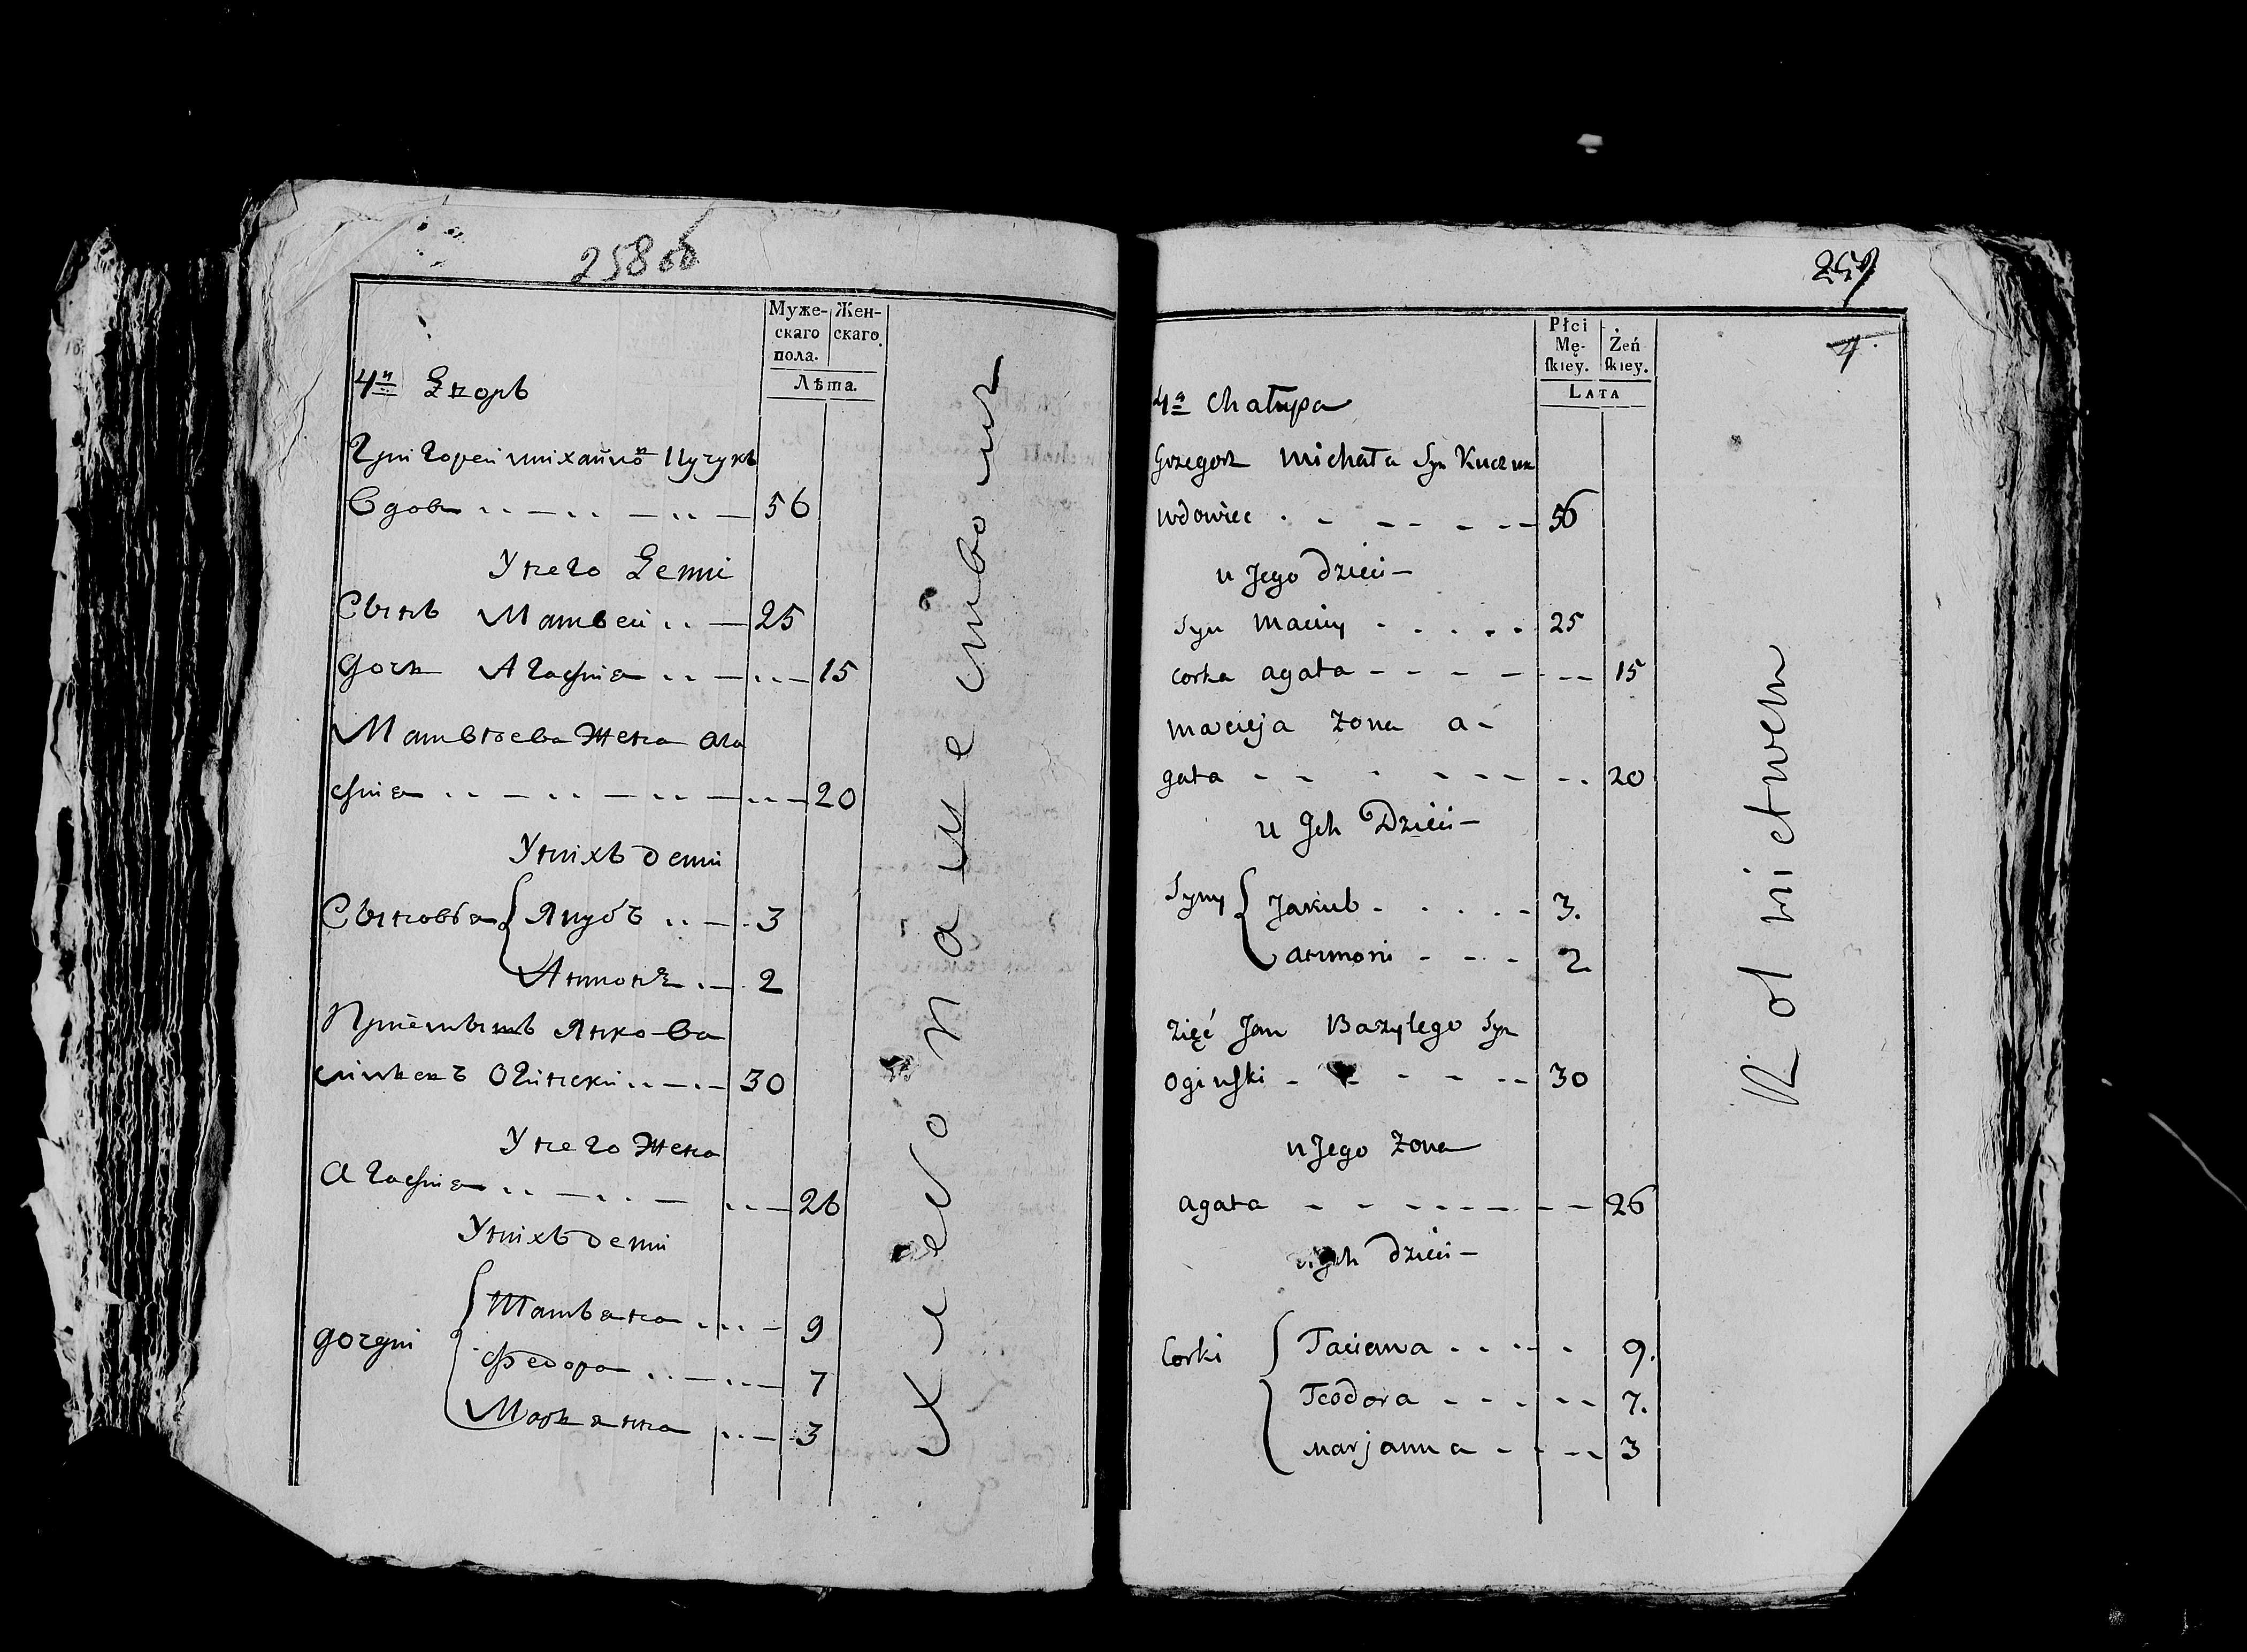 258 об
Муже-
скаго
пола.
Жен-
скаго.
Лѣта.
4й Дворъ
Григорей михайло
Вдовъ 56
У него Дети
Сынъ Матвеи 25
дочь Агафия 15
Матвѣева жена ага
фия 20
У нихъ дети
Сыновья Якубъ 3
Антонъ 2
Приёмышъ Янко Ва
Огински 30
У него жена
Агафия 26
У нихъ дети
дочери Татьяна 9
Федора 7
Марьянна 3
Хлебопашествомъ
259
4
Płci
Mę-
ſkiey.
Żeń
ſkiey.
LATA
4a Chałupa
Grzegorz Michała Syn Kuczuk
wdowiec 56
u Jego dzieci
Syn Maciey 25
corka agata 15
macieja żona a-
gata 20
u Jch Dzieci
Syny Jakub 3.
antoni 2
zięć Jan Bazylego Syn
Oginſki 30
u Jego żona
agata 26
u Jch dzieci
Corki Taciana 9.
Teodora 7.
marjanna 3
Rolnictwem